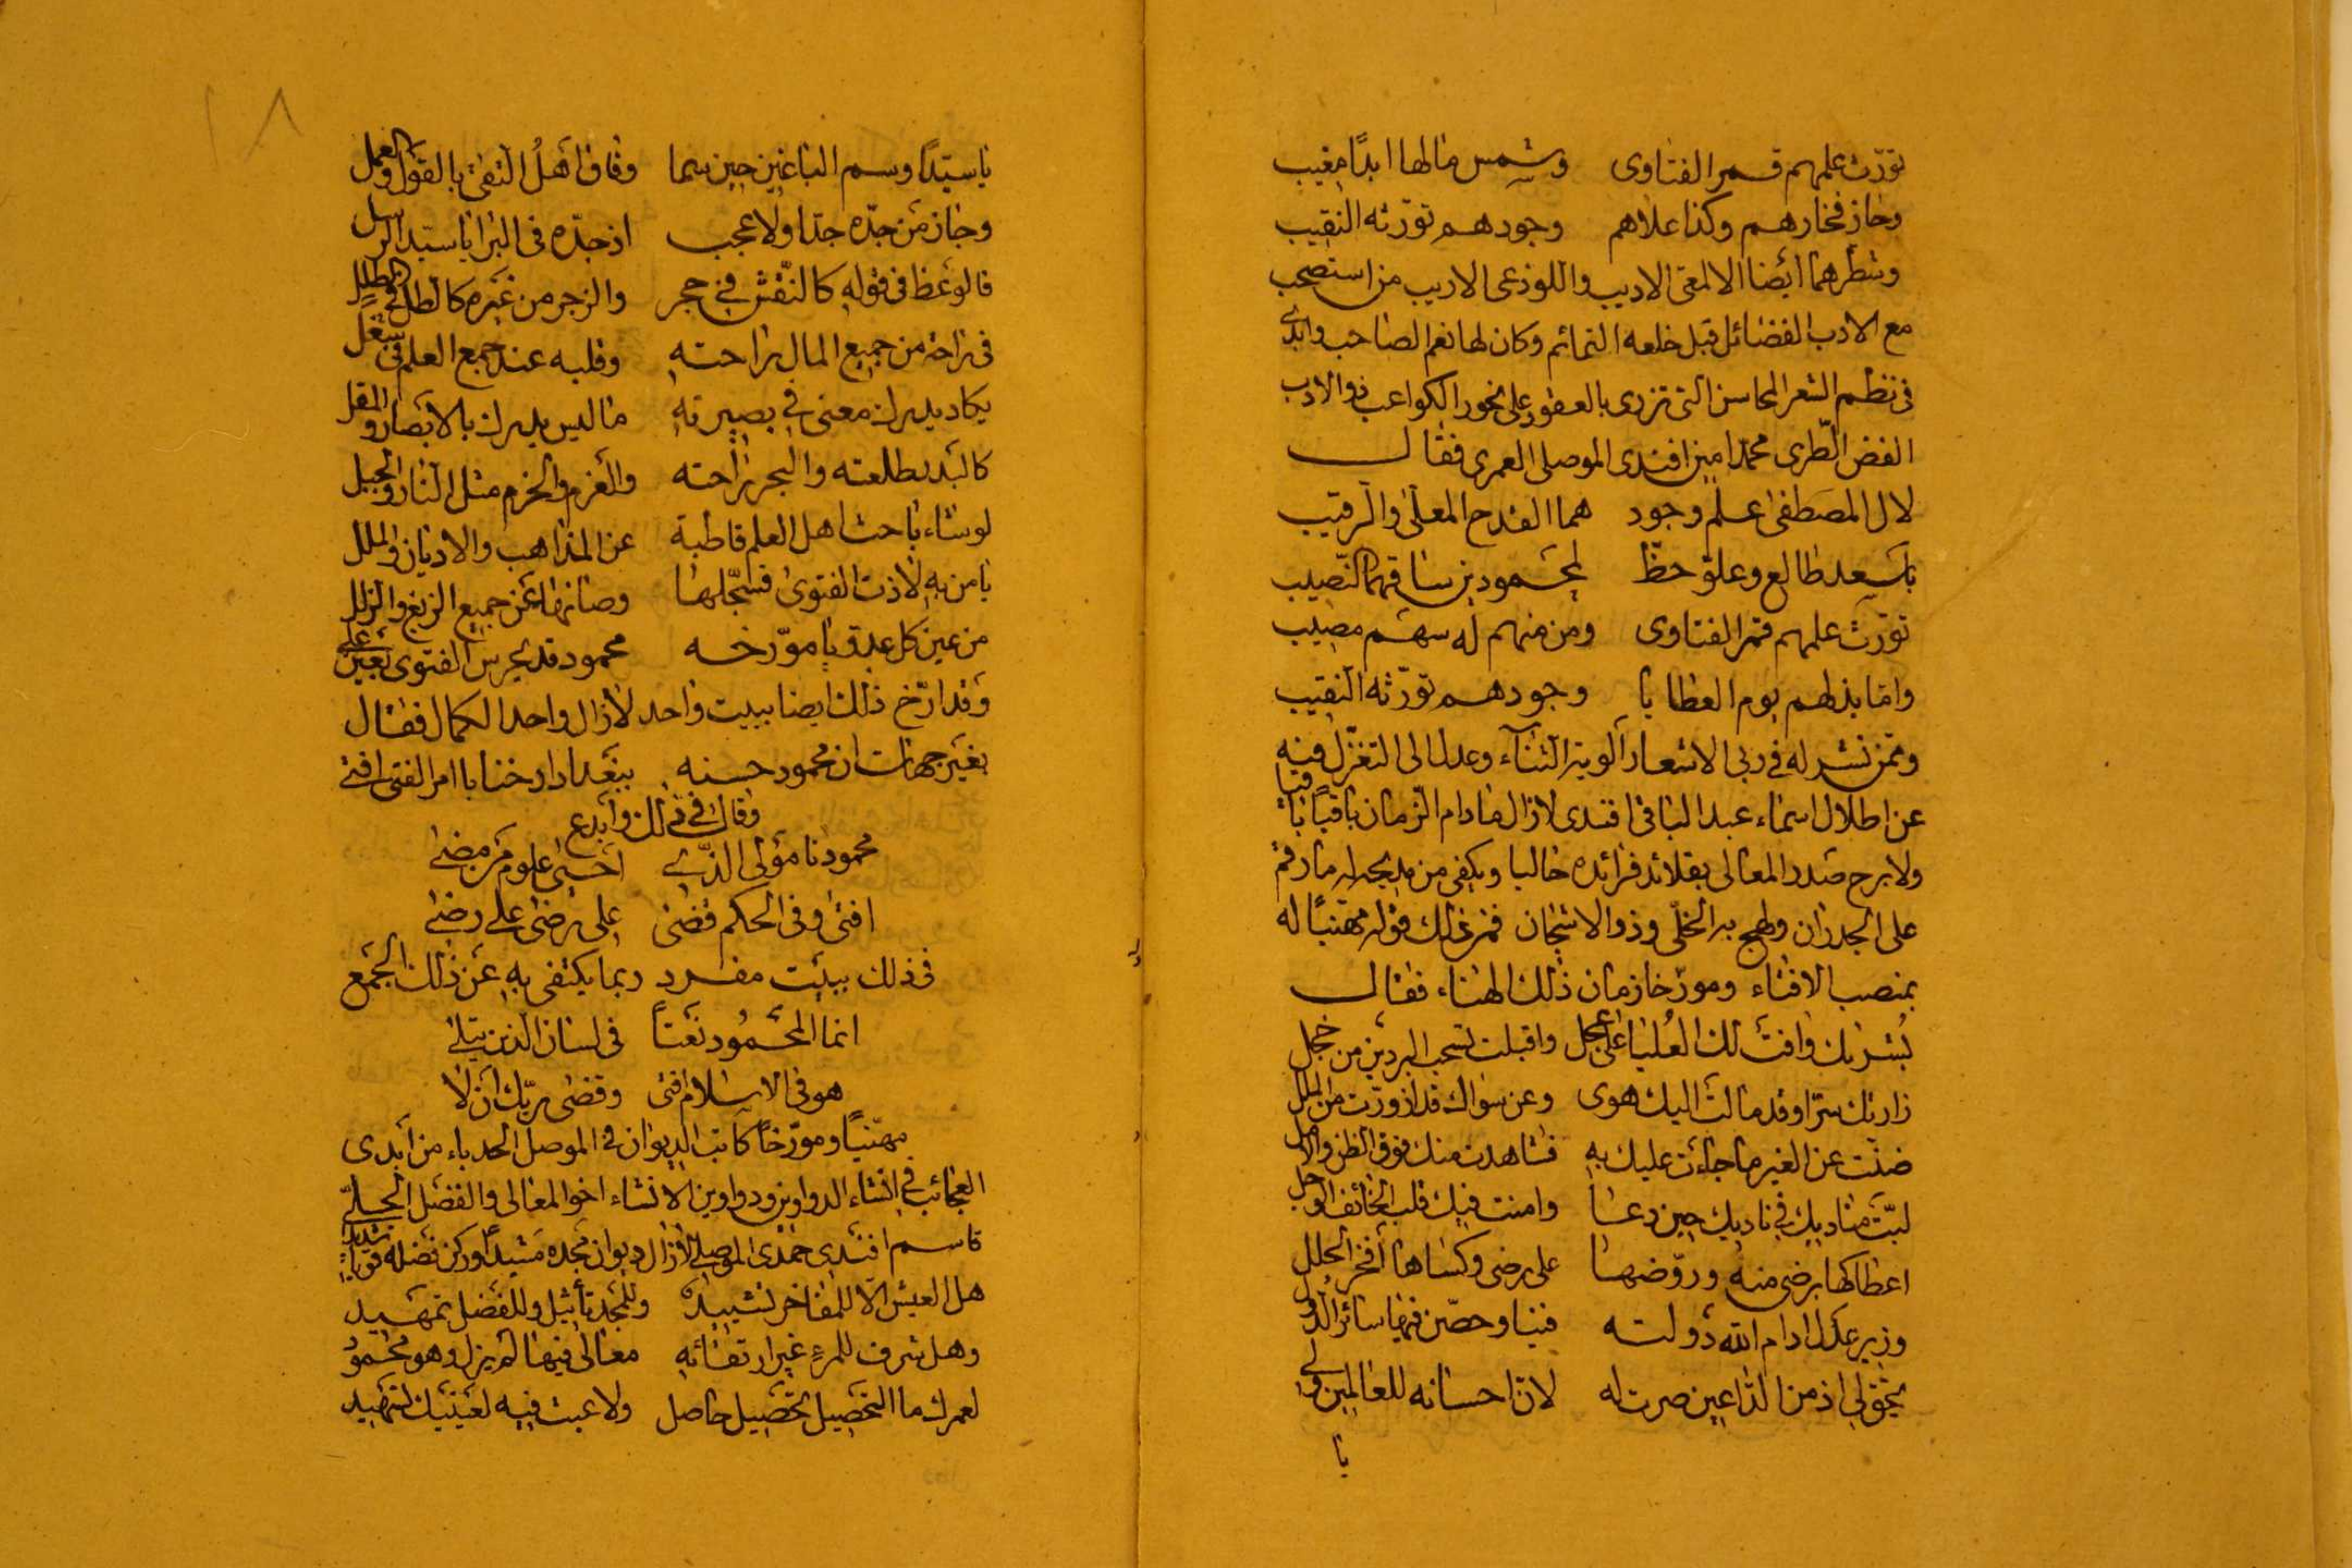 تورّث علمهم قمر الفتاوى وشمس مالها ابدًا مغيب
وحاز فخارهم وكذا علاهم وجودهم تورّثه النقيب
وشطرهما أيضا الالمعي الاديب واللوذعي الاريب من استصحب
مع الادب الفضائل قبل خلعه التمائم وكان لها نعم الصاحب وابدى
في نظم الشعر المحاسن التي تزرى بالعقود على نحور الكواعب ذو الادب
الغض الطرى محمد امين افندى الموصلي العمرى فقال
لال المصطفى علم وجود هما القدح المعلى والرقيب
باسعد طالع وعلوّ حظّ لمحمودين ساقهما النّصيب
تورّث علمهم قمر الفتاوى ومن منهم له سهم مصيب
وامّا بذلهم يوم العطايا وجودهم تورّثه النقيب
وممن نشر له في ربى الاشعار ألوية الثناء وعدل الى التغزّل فيه
عن اطلال اسماء عبد الباقي افندى لازال مادام الزمان باقيًا
ولا برح صدر المعالى بقلائد فرائده حاليا ويكفى من مديحه له ما رقم
على الجدران ولهج به الخلّى وذو الاشجان فمن ذلك قوله مهنيًا له
بمنصب الافتاء ومورّخا زمان ذلك الهناء، فقال
بُشريك وافت لك العُليا على عجل واقبلت تسحب البردين من خجل
زارتك سرّا وقد مالت اليك هوى وعن سواك قد ازورّت من الملل
ضنّت عن الغير ما جاءت عليك به فشاهدت منك فوق الظن والامل
لبّت مناديك في ناديك حين دعا وامنت فيك قلب الخائف الوجل
اعطاكها برضى منه وروّضها على رضى وكساها أفخر الحلل
وزير عدل ادام الله دولته فينا وحصّن فيها سائر الدول
يحق لي اذ من الداعين صرت له لانّ احسانه للعالمين ولى
يا
١٨
يا سيّدًا وسم الباغين حين سما وفاق أهلُ التقى بالقول والعمل
وحاز من جدّه جدّا ولا عجب اذ جدّه في البرايا سيّد الرسل
فالوعظ في قوله كالنّقش في حجر والزجر من غيره كالطل في طلل
في راحة من جميع المال راحته وقلبه عند جمع العلم في شغل
يكاد يدرك معنى في بصيرته ما ليس يدرك بالابصار والمقل
كالبدر طلعته والبحر راحته والعزم والحزم مثل النار والجبل
لو شاء باحث اهل العلم قاطبة عن المذاهب والاديان والملل
يا من به لاذت الفتوى فسجّلها وصانها عن جميع الزيغ والزلل
من عين كل عدو يا مورّخه محمود قد يحرس الفتوى بعين على
وقد ارّخ ذلك ايضا ببيت واحد لازال واحد الكمال فقال
بغير جهات ان محمود حسنه ببغداد ارخنا بامر الفتى افتى
وقال في ذلك وابدع
محمودنا مولى الذي احيى علوم من مضى
افتى وفي الحكم قضى على رضى على رضى
في ذلك ببيت مفرد ربما يكتفى به عن ذلك الجمع
انما المحمُود نعتاً في لسان الذين يتلى
هو في الاسلام افتى وقضى ربّك ان لا
مهنيًا ومورّخاً كاتب الديوان في الموصل الحدباء من أبدى
العجائب في انشاء الدواوين ودواوين الانشاء اخو المعالى والفضل الجلىّ
قاسم افندى حمدى الموصلي لازال ديوان مجده مشيدًا وركن فضله قويًا شديدًا
هل العيش الا للمفاخر تشييد وللمجد تأثيل وللفضل تمهيد
وهل شرف للمرء غير ارتقائه معالى فيها لم يزل وهو محمُود
لعمرك ما التحصيل تحصيل حاصل ولا عبث فيه لعينيك تسهيد